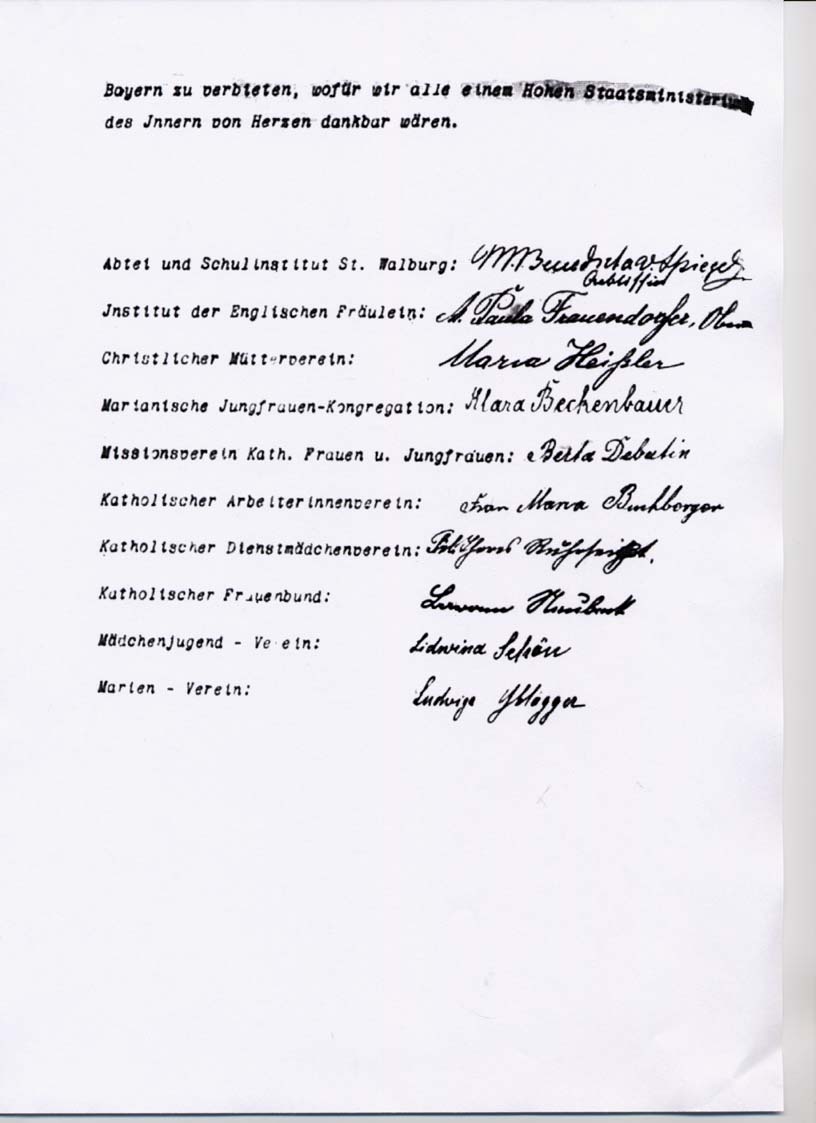 Bayern zu verbieten, wofür wir alle einem Hohen Staatsministerium
des Jnnern von Herzen dankbar wären.
Abtei und Schulinstitut St. Walburg: M. Benedicta v. Spiegel
Äbtissin
Jnstitut der Englischen Fräulein: M. Paula Frauendorfer, Oberin
Christlicher Mütterverein: Maria Heißler
Marianische Jungfrauen-Kongregation: Klara Beckenbauer
Missionsverein Kath. Frauen u. Jungfrauen: Berta Dabatin
Katholischer Arbeiterinnenverein: Frau Maria Buchberger
Katholischer Dienstmädchenverein:
Katholischer Frauenbund:
Mädchenjugend - Verein: Lidwina Schön
Marien - Verein: Ludwiga